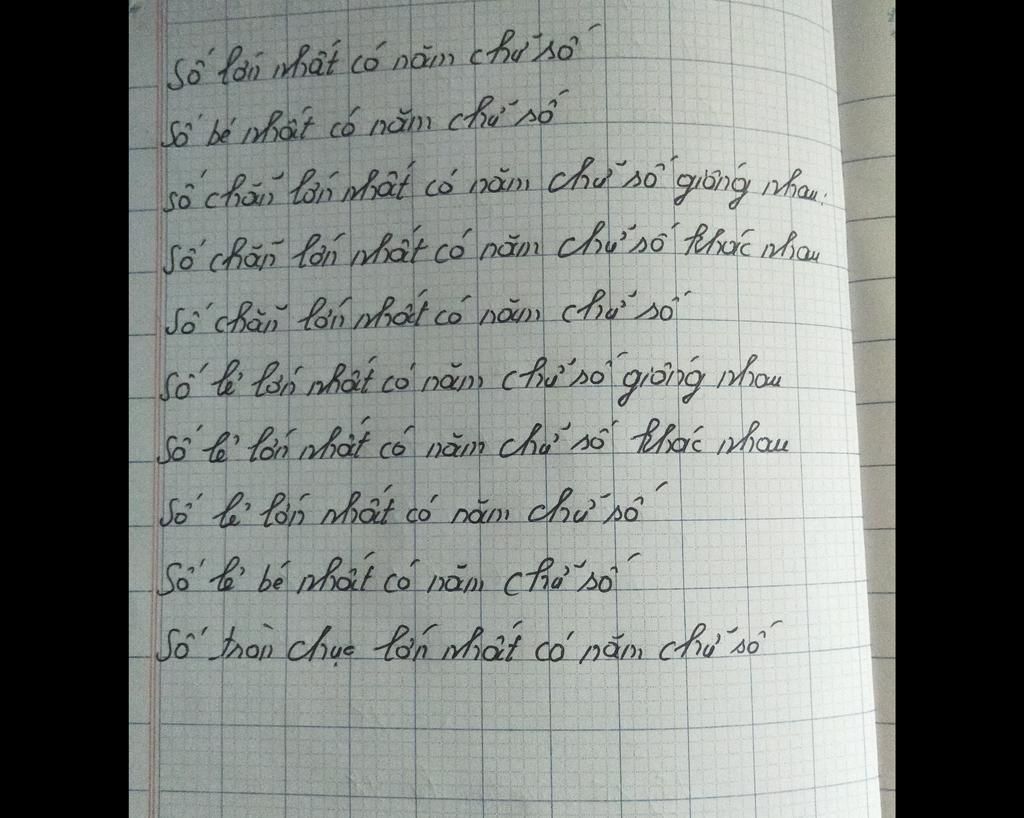 Số lớn nhất có năm chữ số
Số bé nhất có năm chữ số
Số chẵn lớn nhất có năm chữ số giống nhau.
Số chẵn lớn nhất có năm chữ số khác nhau
Số chẵn lớn nhất có năm chữ số
Số lẻ lớn nhất có năm chữ số giống nhau
Số lẻ lớn nhất có năm chữ số khác nhau
Số lẻ lớn nhất có năm chữ số
Số lẻ bé nhất có năm chữ số
Số tròn chục lớn nhất có năm chữ số